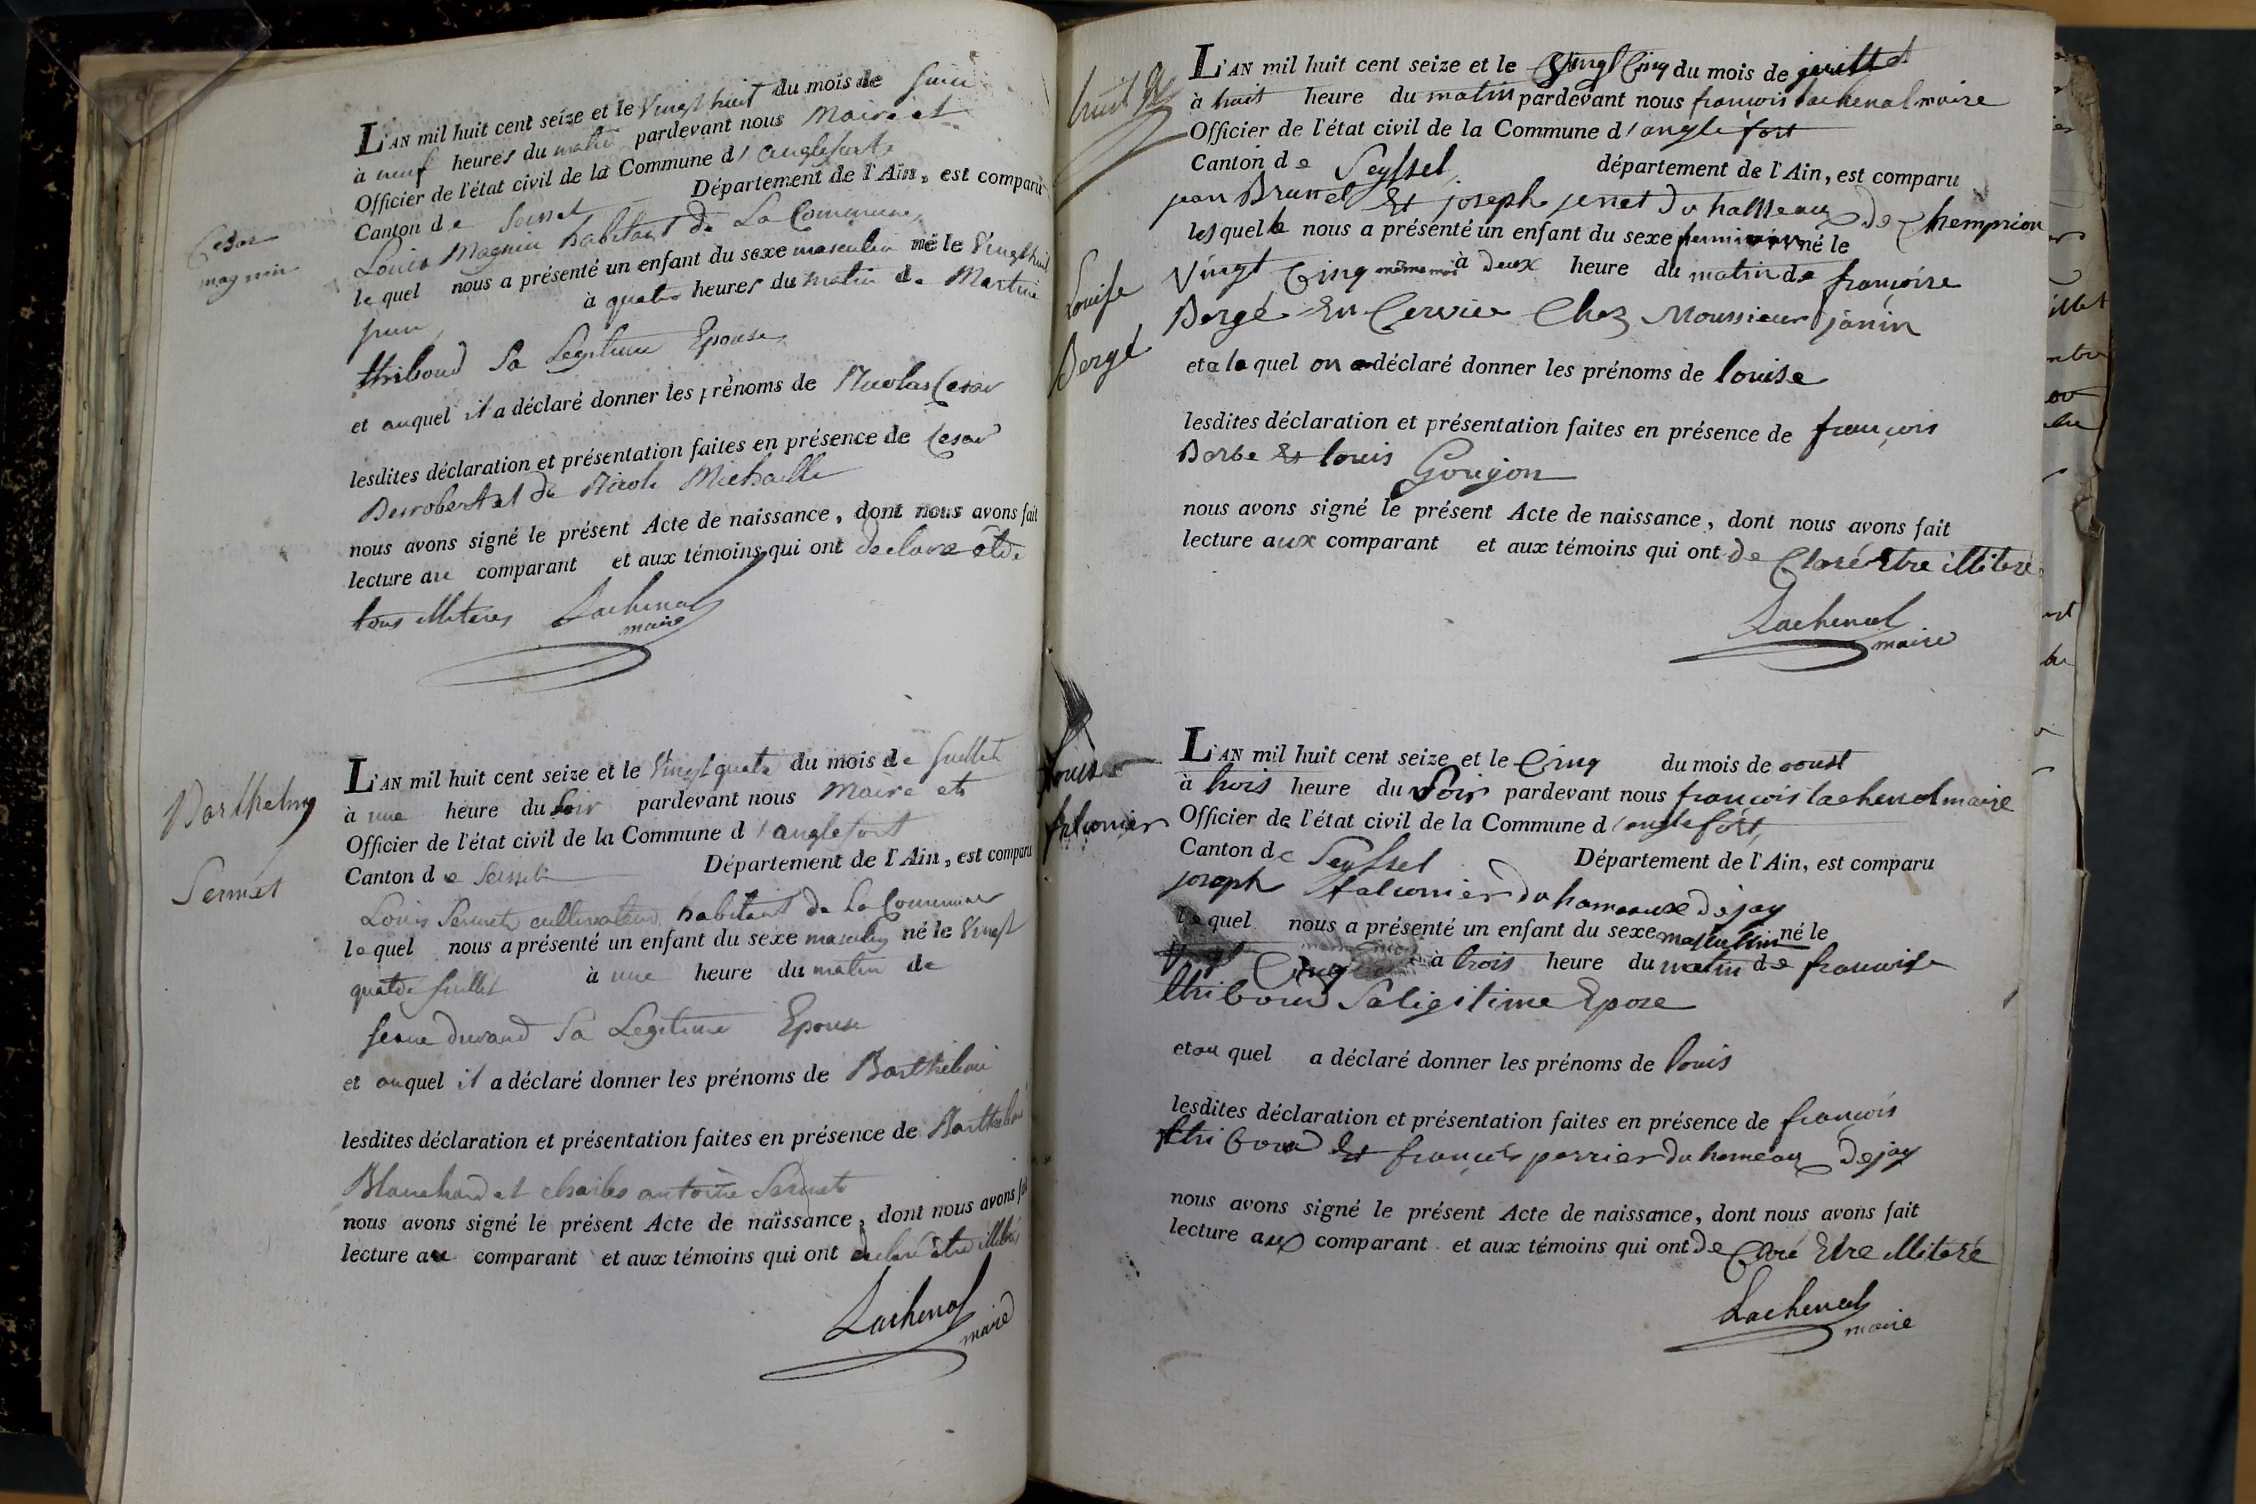 Cesar
magnin
L'AN mil huit cent seize et le Vingt huit du mois de Juin
à neuf heures du matin pardevant nous Maire et
Officier de l'état civil de la Commune d'anglefort
Canton de Seissel Département de l'Ain, est comparu
Louis Magnin habitant de La Commune
lequel nous a présenté un enfant du sexe masculin né le Vingt huit
juin à quatre heures du matin de Martine
thiboud Sa Legitime Epouse
et auquel il a déclaré donner les prénoms de Nicolas Cesar
lesdites déclaration et présentation faites en présence de Cesar
Desrobert et de Nicole Michaille
nous avons signé le présent Acte de naissance, dont nous avons fait
lecture au comparant et aux témoins qui ont declaré être
tous illiteres Lachenal
maire
Barthelmy
Sermet
L'AN mil huit cent seize et le Vingt quatre du mois de Juillet
à une heure du Soir pardevant nous Maire et
Officier de l'état civil de la Commune d'anglefort
Canton de Seissel Département de l'Ain, est comparu
Louis Sermet cultivateur habitant de La Commune
lequel nous a présenté un enfant du sexe masculin né le Vingt
quatre Juillet à une heure du matin de
Jeane durand Sa Legitime Epouse
et auquel il a déclaré donner les prénoms de Barthelemi
lesdites déclaration et présentation faites en présence de Barthelemi
Blanchard et charles antoine Sermet
nous avons signé le présent Acte de naissance, dont nous avons fait
lecture au comparant et aux témoins qui ont declaré être illitéres
Lachenal
maire
huit
Louise
Bergé
L'AN mil huit cent seize et le Vingt Cinq du mois de juillet
à huit heure du matin pardevant nous françois lachenal maire
Officier de l'état civil de la Commune d'anglefort
Canton de Seyssel département de l'Ain, est comparu
jean Brunet Et joseph jenet du hammeaux de Chemprion
lesquele nous a présenté un enfant du sexe feminin né le
Vingt Cinq même moi à deux heure du matin de françoise
Bergé En Cervice Chez Moussieur janin
et a laquel on a déclaré donner les prénoms de louise
lesdites déclaration et présentation faites en présence de françois
Borbe Et louis Goujon
nous avons signé le présent Acte de naissance, dont nous avons fait
lecture aux comparant et aux témoins qui ont de Claré Etre illiteré
Lachenal
maire
louis
falconier
L'AN mil huit cent seize et le Cinq du mois de aoust
à trois heure du Soir pardevant nous françois lachenal maire
Officier de l'état civil de la Commune d'anglefort
Canton de Seyssel Département de l'Ain, est comparu
joseph falconier du hameaux de jay
lequel nous a présenté un enfant du sexe masculin né le
Vingt Cinq à trois heure du matin de francoise
thiboud Saligitime Epose
et au quel a déclaré donner les prénoms de louis
lesdites déclaration et présentation faites en présence de françois
thiboud Et françois perrier du hameau de jay
nous avons signé le présent Acte de naissance, dont nous avons fait
lecture aux comparant et aux témoins qui ont de Claré Etre illiteré
Lachenal
maire